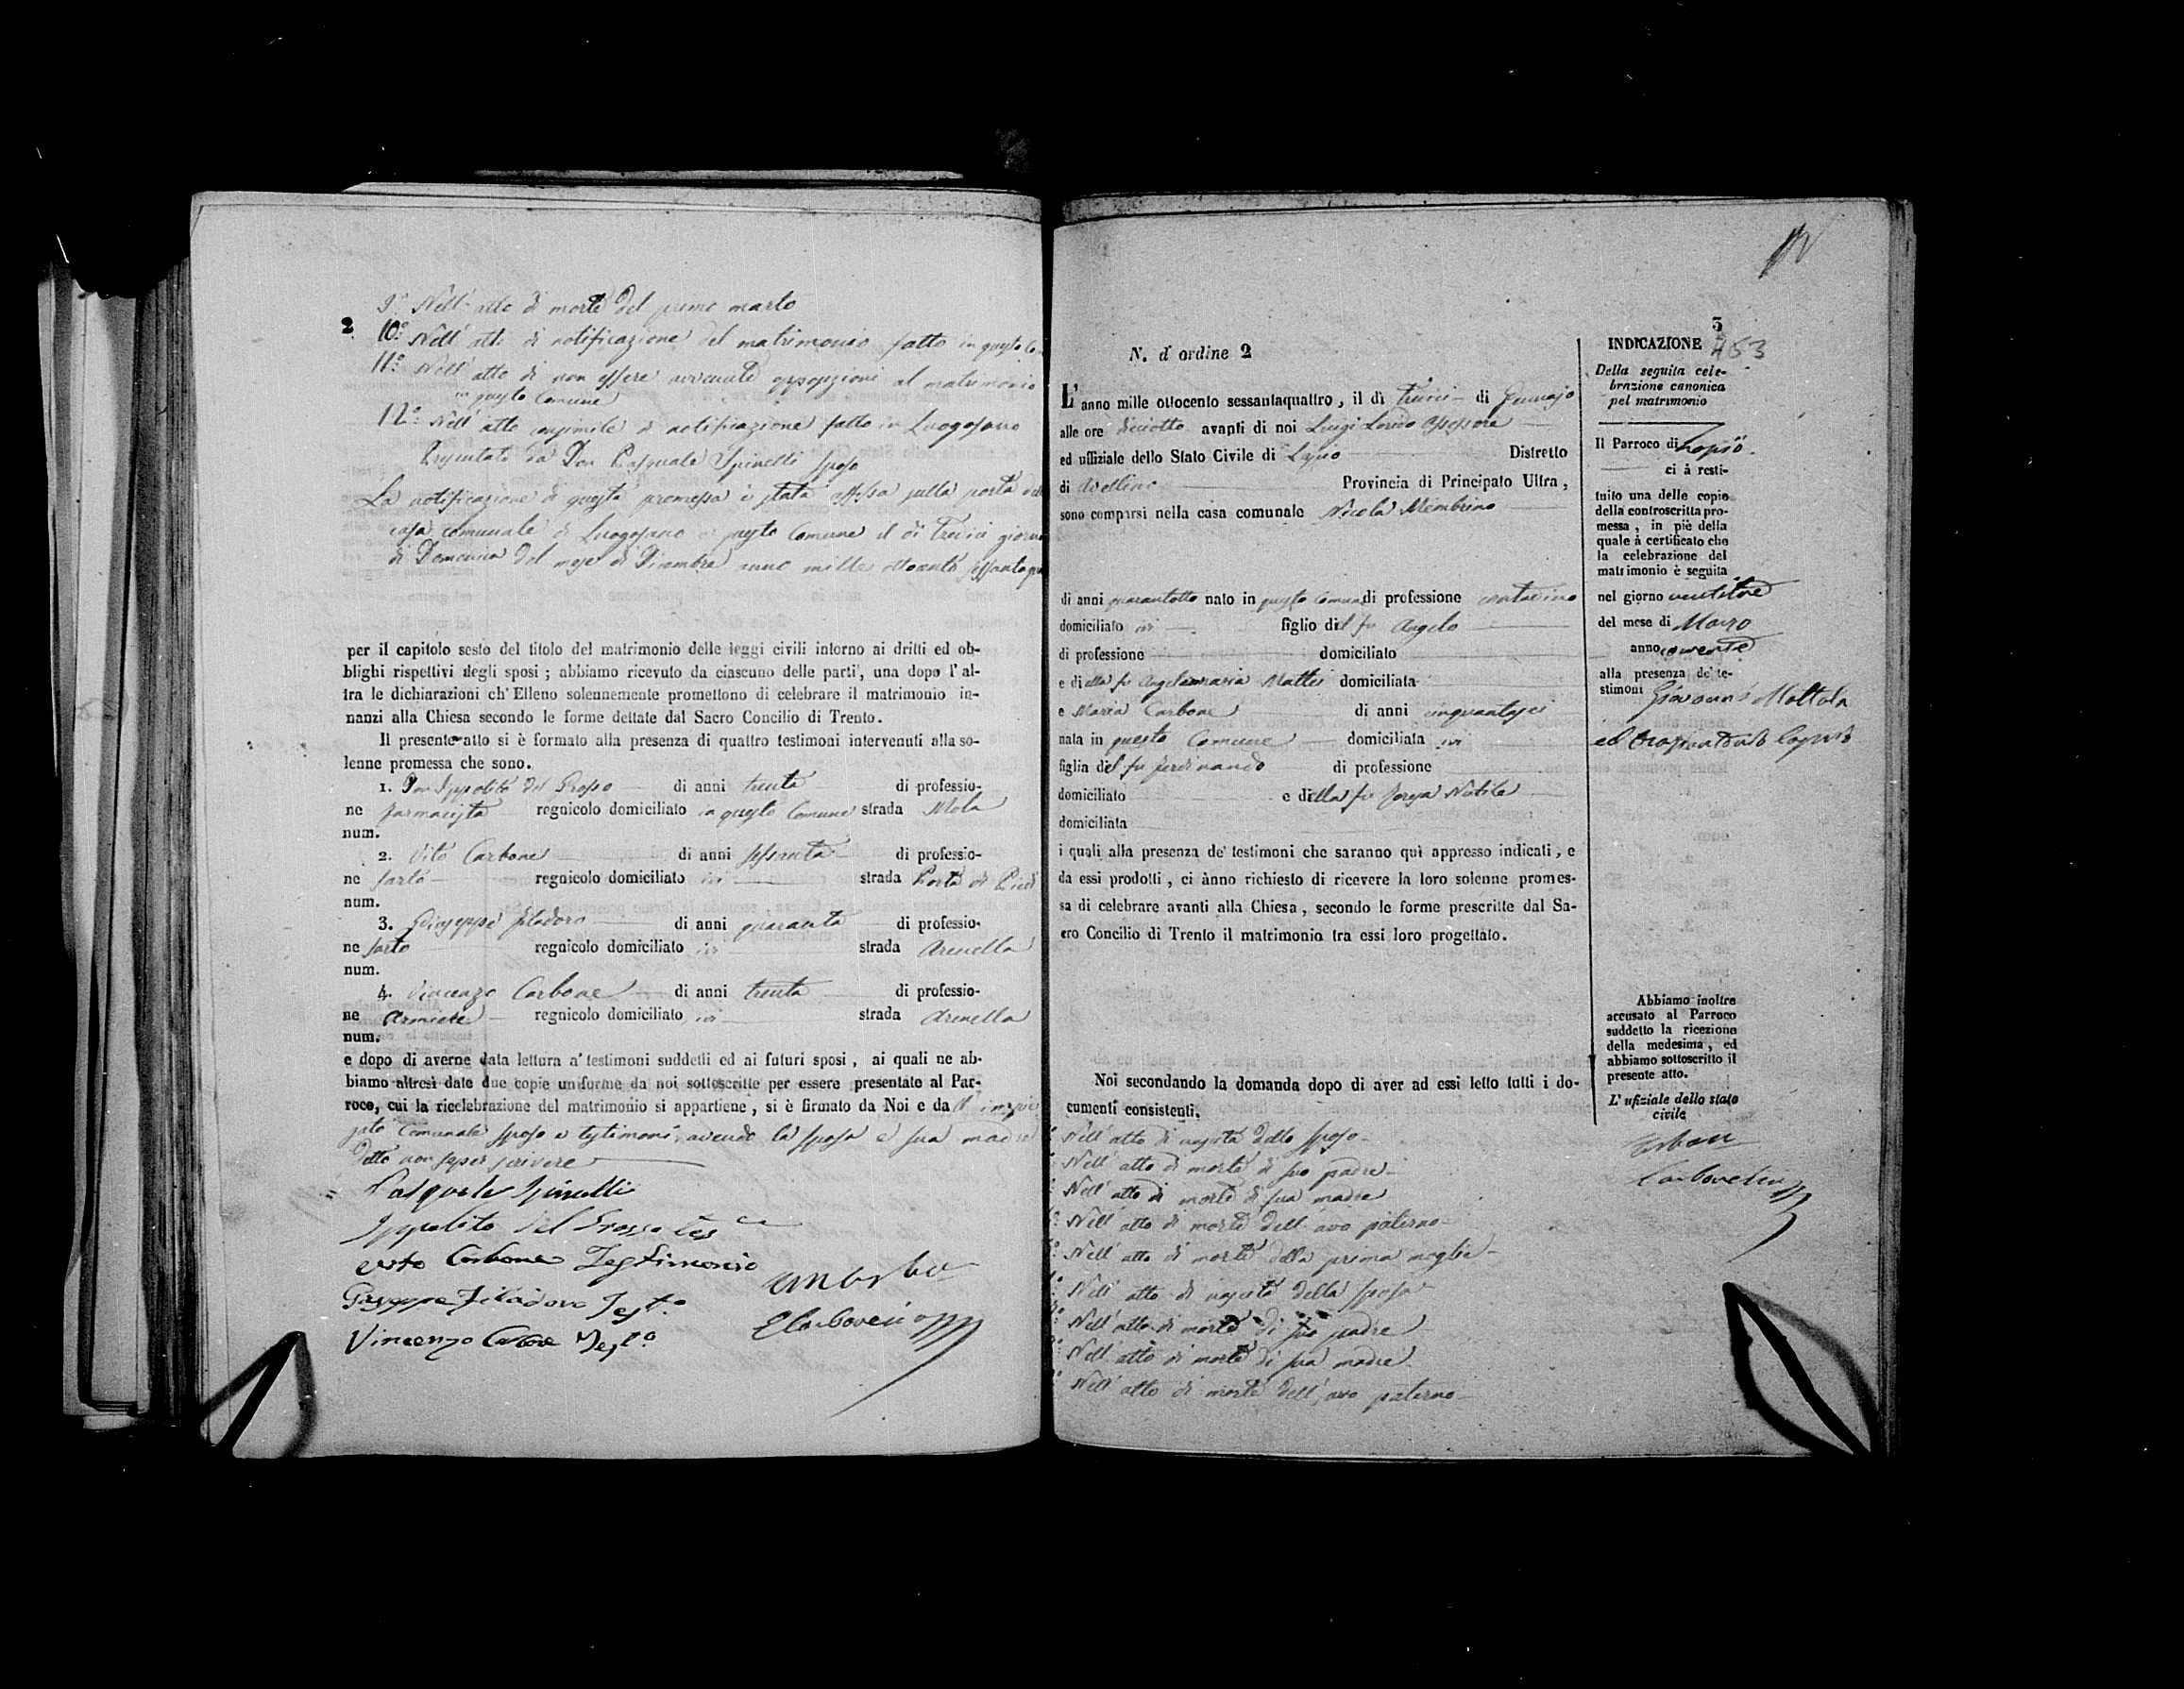 9° Nell'atto di morte del primo marito
2
10° Nell'atto di notificazione del matrimonio fatto in questo
11° Nell'atto di non essere avvenute opposizioni al matrimonio
in questo Comune
12° Nell'atto di notificazione fatto in Luogosano
Presentato da Don Pasquale Spinelli sposo
La notificazione di questa promessa è stata affissa sulla porta
casa comunale di Luogosano e questo Comune il dì Tredici
di Domenica del mese di Dicembre anno mille ottocento
per il capitolo sesto del titolo del matrimonio delle leggi civili intorno ai dritti ed ob-
blighi rispettivi degli sposi ; abbiamo ricevuto da ciascuno delle parti, una dopo l'al-
tra le dichiarazioni ch'Elleno solennemente promettono di celebrare il matrimonio in-
nanzi alla Chiesa secondo le forme dettate dal Sacro Concilio di Trento.
Il presente atto si è formato alla presenza di quattro testimoni intervenuti alla so-
lenne promessa che sono.
1. Don Ippolito Del Grosso di anni trenta di professio-
ne farmacista regnicolo domiciliato in questo Comune strada Mola
num.
2. Vito Carbone di anni sessanta di professio-
ne sarto regnicolo domiciliato ivi strada Porta di
num.
3. Giuseppe Filadoro di anni quaranta di professio-
ne sarto regnicolo domiciliato ivi strada Arenella
num.
4. Vincenzo Carbone di anni trenta di professio-
ne Armiere regnicolo domiciliato ivi strada Arenella
num.
e dopo di averne data lettura a' testimoni suddetti ed ai futuri sposi, ai quali ne ab-
biamo altresì date due copie uniforme da noi sottoscritte per essere presentate al Par-
roco, cui la ricelebrazione del matrimonio si appartiene, si è firmato da Noi e da
Comunale sposo e testimoni, avendo la sposa e sua madre
detto non saper scrivere
Pasquale Spinelli
Ippolito del Grosso
Vito Carbone Testimonio
Giuseppe Filadoro Test.°
Vincenzo Carbone Test.°
3
453
N. d'ordine 2
L'anno mille ottocento sessantaquattro, il dì tredici di Gennajo
alle ore diciotto avanti di noi Luigi Assessore
ed uffiziale dello Stato Civile di Lapio Distretto
di Avellino Provincia di Principato Ultra,
sono comparsi nella casa comunale Nicola Membrino
di anni quarantotto nato in questo Comune di professione contadino
domiciliato ivi figlio del fu Angelo
di professione domiciliato
e della fu Angelamaria Mattis domiciliata
e Maria Carbone di anni cinquantasei
nata in questo Comune domiciliata ivi
figlia del fu Ferdinando di professione
domiciliato e della fu Teresa Nobile
domiciliata
i quali alla presenza de' testimoni che saranno quì appresso indicati, e
da essi prodotti, ci ànno richiesto di ricevere la loro solenne promes-
sa di celebrare avanti alla Chiesa, secondo le forme prescritte dal Sa-
cro Concilio di Trento il matrimonio tra essi loro progettato.
Noi secondando la domanda dopo di aver ad essi letto tutti i do-
cumenti consistenti.
Nell'atto di nascita dello sposo
Nell'atto di morte di suo padre
Nell'atto di morte di sua madre
Nell'atto di morte dell'avo paterno
Nell'atto di morte della prima moglie
Nell'atto di nascita della sposa
Nell'atto di morte di suo padre
Nell'atto di morte di sua madre
Nell'atto di morte dell'avo paterno
INDICAZIONE
Della seguita cele-
brazione canonica
pel matrimonio
Il Parroco di Lapio
ci à resti-
tuito una delle copie
della controscritta pro-
messa, in piè della
quale à certificato che
la celebrazione del
matrimonio è seguita
nel giorno ventitre
del mese di Marzo
anno corrente
alla presenza de' te-
stimoni Giovanni
ed
Abbiamo inoltre
accusato al Parroco
suddetto la ricezione
della medesima, ed
abbiamo sottoscritto il
presente atto.
L'ufiziale dello stato
civile